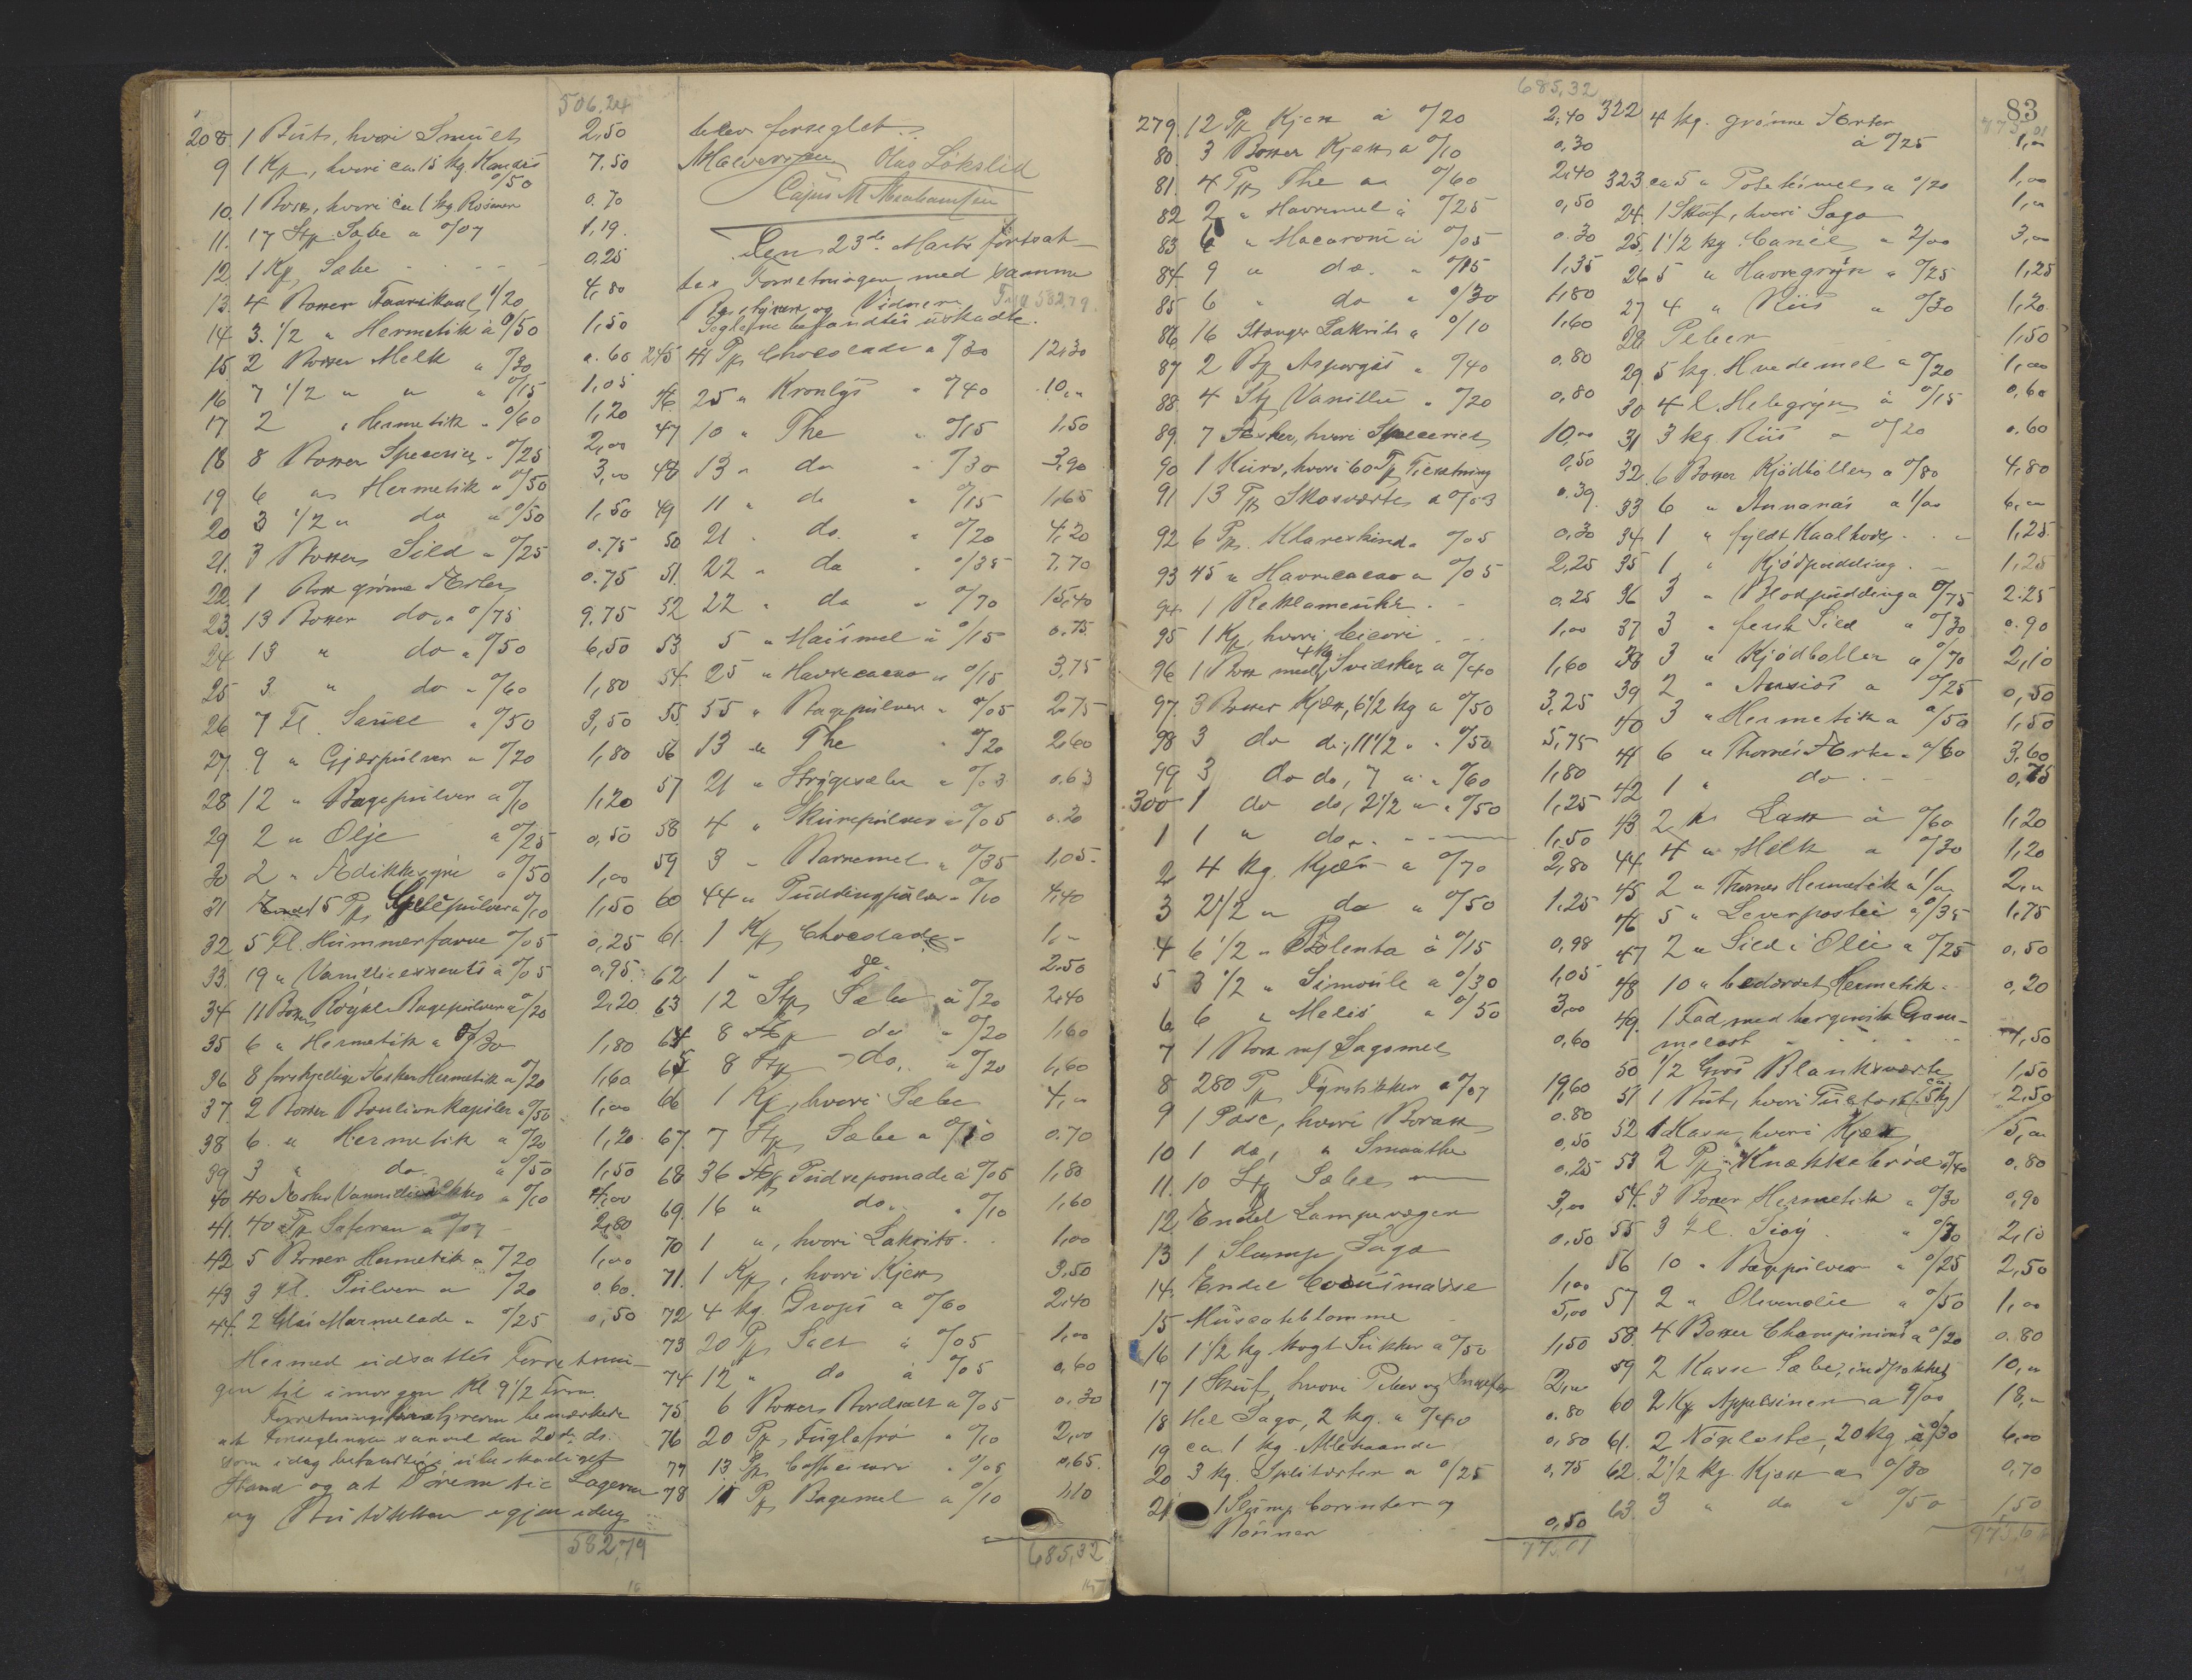 506,24
208. 1 Bøtt, hvori Smult 2,50
9 1 Kp, hvori ca. 15 kg. Kandis 0/50 7,50
10. 1 Boks, hvori ca 1 kg. Rosiner 0.70
11. 17 Stp. Sæbe a 0/07 1,19.
12. 1 Kp. Sæbe 0,25
13. 4 Boxer Faarikaal 1/20 4,80
14 3. 1/2 " Hermetik à 0/50 1,50
15. 2 Boxer Melk " 0/30 0.60
16 7 1/2 " " " 0/15 1,05
17 2 " Hermetik " 0/60 1,20
18 8 Boxer Specerier " 0/25 2,00
19 6 " Hermetik " 0/50 3,00
20 3 1/2 " do " 0/50 1,50
21. 3 Boxer Sild " 0/25 0.75
22. 1 Box grønne Ærter 0.75
23. 13 Boxer do. a 0/75 9.75
24 13 " do " 0/50 6,50
25 3 " do " 0/60 1,80
26 7 Fl. Sauce " 0/50 3,50
27. 9 " Gjærpulver " 0/20 1,80
28 12 " Bagepulver a 0/10 1,20
29 2 " Olje a 0/25 0,50
30 2 " Ædikksyre a 0/50 1,00
31 15 Pk Geléepulver a 0/10 1,50
32 5 Fl. Hummerfarve 0/05 0,25
33. 19 " Vanilleessents à 0/05 0,95
34 11 Boxer Royal Bagepulver a 0/20 2,20
35 6 " Hermetik a 0/30 1,80
36 8 forskjellige Æsker Hermetik a 0/20 1,60
37. 2 Boxer Boulionkapsler a 0/50 1,00
38 6 " Hermetik a 0/20 1,20
39 3 " do. a 0/50 1,50
40 40 Æsker a 0/10 4,00
41. 40 Pk Safran a 0/07 2,80
42 5 Boxer Hermetik a 0/20 1,00
43 3 Fl. Pulver a 0/20 0.60.
44. 2 Glas Marmelade " 0/25 0,50
Hermed udsattes Forretnin-
gen til imorgen Kl. 9 1/2 Form.
Forretningsbestyreren bemærkede
at Forseglingen saavel den 20de ds.
som idag befandtes ubeskadiget
Stand og at Dørene til Lageren
og Butikken igjen idag
582,79
blev forseglet.
Olaf Løkslid
Cajus M Abrahamsen
Den 23de Marts fortsat-
tes Forretningen med samme
Bestyrer og Vidner. Fra 582,79.
Seglene befandtes uskadte.
245 41 Pk Chocolade a 0/30 12,30
46. 25 " Kronlys " 0/40 10,"
47 10 " The " 0/15 1,50
48 13 " do " 0/30 3,90
49 11 " do " 0/15 1,65
50 21 " do. " 0/20 4,20
51. 22 " do " 0/35 7,70
52 22 " do " 0/70 15,40
53 5 " Maismel à 0/15 0.75
54. 25 " Havrecacao " 0/15 3,75
55. 55 " Bagepulver " 0/05 2,75
56 13 " The " 0/20 2,60
57 21 " Strygesæbe a 0/03 0.63
58 4 " Skurepulver à 0/05 0.20
59 3 " Barnemel " 0/35 1,05.
60 44 " Puddingpulver " 0/10 4,40
61. 1 Kp Chocolade 1,-
62. 1 " do 2.50
63 12 Stp. Sæbe à 0/20 2,40
64 8 Stp do " 0/20 1,60
65 8 Stp do. " 0/20 1,60
66 1 Kp, hvori Sæbe 4,"
67. 7 Stp Sæbe a 0/10 0.70
68 36 Pudrepomade à 0/05 1,80
69. 16 " do. " 0/10 1,60
70 1 ", hvori Lakrits 1,00
71. 1 Kp, hvori Kjeks 3,50
72 4 kg. Drops a 0/60 2,40
73 20 Pk Salt à 0/05 1,00
74 12 " do à 0/05 0,60
75. 6 Boxer Bordsalt a 0/05 0,30
76 20 Pk Fuglefrø " 0/10 2,00
77 13 Pk " 0/05 0,65.
78 11 Pk Bagemel a 0/10 1,10
685,32
685,32
279. 12 Pk Kjeks à 0/20 2,40
80. 3 Boxer Kjeks a 0/10 0.30
81. 4 Pk The a 0/60 2,40
82 2 " Havremel à 0/25 0,50
83 6 " Macaroni à 0/05 0.30
84 9 " do. " 0/15 1,35
85 6 " do " 0/30 1,80
86 16 Stænger Lakrits a 0/10 1,60
87 2 Bx Asparges " 0/40 0.80
88. 4 Stp Vanille " 0/20 0,80
89. 7 Æsker, hvori Specerier 10,00
90 1 Kurv, hvori 60 Pk 0,50
91 13 Pk Skosværte a 0/03 0.39
92 6 Pk. Klareskind " 0/05 0,30
93 45 " Havrecacao a 0/05 2,25
94 1 Reklameuhr 0.25
95 1 Kp, hvori Cicori 1,00
96 1 Box med 4 kg Svidsker a 0/40 1,60
97. 3 Boxer Kjeks, 6 1/2 kg a 0/50 3,25
98 3 do do, 11 1/2 " " 0/50 5,75
99 3 do do, 7 " " 0/60 1,80
300 1 do do, 2 1/2 " " 0/50 1,25
1 1 " do. 1,50
2 4 kg. Kjeks a 0/70 2,80
3 2 1/2 " do " 0/50 1.25
4 6 1/2 " Polenta à 0/15 0,98
5 3 1/2 " Simoule a 0/30 1,05
6 6 " Melis " 0/50 3,00
7 1 Box m/ Sagomel 0,60
8 280 Pk Fyrstikker a 0/07 19,60
9 1 Pose, hvori Borax 0.80
10 1 do, " Smaatte 0,50
11. 10 Stp Sæbe 0.25
12 Endel Lampevæger 3,00
13 1 Slump Sago 0,50
14. Endel Cocusmasse 1,00
15 Muscatblomme 5,00
16 1 1/2 kg kogt Sukker a 0/50 1,50
17 1 Skuf, hvori Peber og Ingefær 2,"
18 Hel Sago, 2 kg. a 0/40 0.80
19 ca 1 kg Allehaande 0,80
20 3 kg. Splitærter a 0/25 0,75
21 1 Slump Corinter og
Rosiner 0,50
775,01
83
775,01
322 4 kg. grønne Ærter
à 0/25 1,"
323 ca 5 " Potetesmel a 0/20 1,00
24. 1 Skuf, hvori Sago 1,"
25. 1 1/2 kg. Canel a 2/00 3,"
26 5 " Havregryn a 0/25 1,25
27 4 " Riis " 0/30 1,20
28 Peber 1,50
29. 5 kg. Hvedemel a 0/20 1,00
30 4 l. Helgryn à 0/15 0,60
31 3 kg. Riis a 0/20 0.60
32. 6 Boxer Kjødboller a 0/80 4,80
33 6 " Annanas a 1/00 6,"
34. 1 " fyldt Kaalhode 1,25
35 1 " Kjødpudding 1,25
36 3 " Blodpudding a 0/75 2.25
37 3 " fersk Sild " 0/30 0.90
38 3 " Kjødboller a 0/70 2,10
39 2 " Ansios a 0/25 0,50
40 3 " Hermetik a 0/50 1,50
41 6 " Thornes Ærter a 0/60 3,60
42 1 " do 0,75
43 2 " Lax à 0/60 1,20
44 4 " Melk a 0/30 1,20
45 2 " Thornes Hermetik a 1/00 2,"
46 5 " Leverpostei a 0/35 1,75
47 2 " Sild i Olie a 0/25 0,50
48 10 " bedærvet Hermetik 0,20
49. 1 Fad med bergensk Gam-
melost 4,50
50 1/2 Gros Blanksværte 1,50
51 1 Bøt, hvori Pultost (ca. 5 kg) 2,50
52 1 Kasse hvori Kjeks 5,"
53 2 Pk Knækkebrød a 0/40 0,80
54. 3 Boxer Hermetik a 0/30 0,90
55 3 Fl. Soy " 0/70 2,10
56 10 " Bagepulver " 0/25 2,50
57 2 " Olivenolie " 0/50 1,00
58. 4 Boxer Champinions a 0/20 0.80
59 2 Kasser Sæbe, indpakket 10,"
60 2 Kp Appelsiner a 9/00 18,"
61. 2 Nøgleoste, 20 kg à 0/30 6,00
62. 2 1/2 kg. Kjeks a 0/30 0,70
63. 3 " do " 0/50 1,50